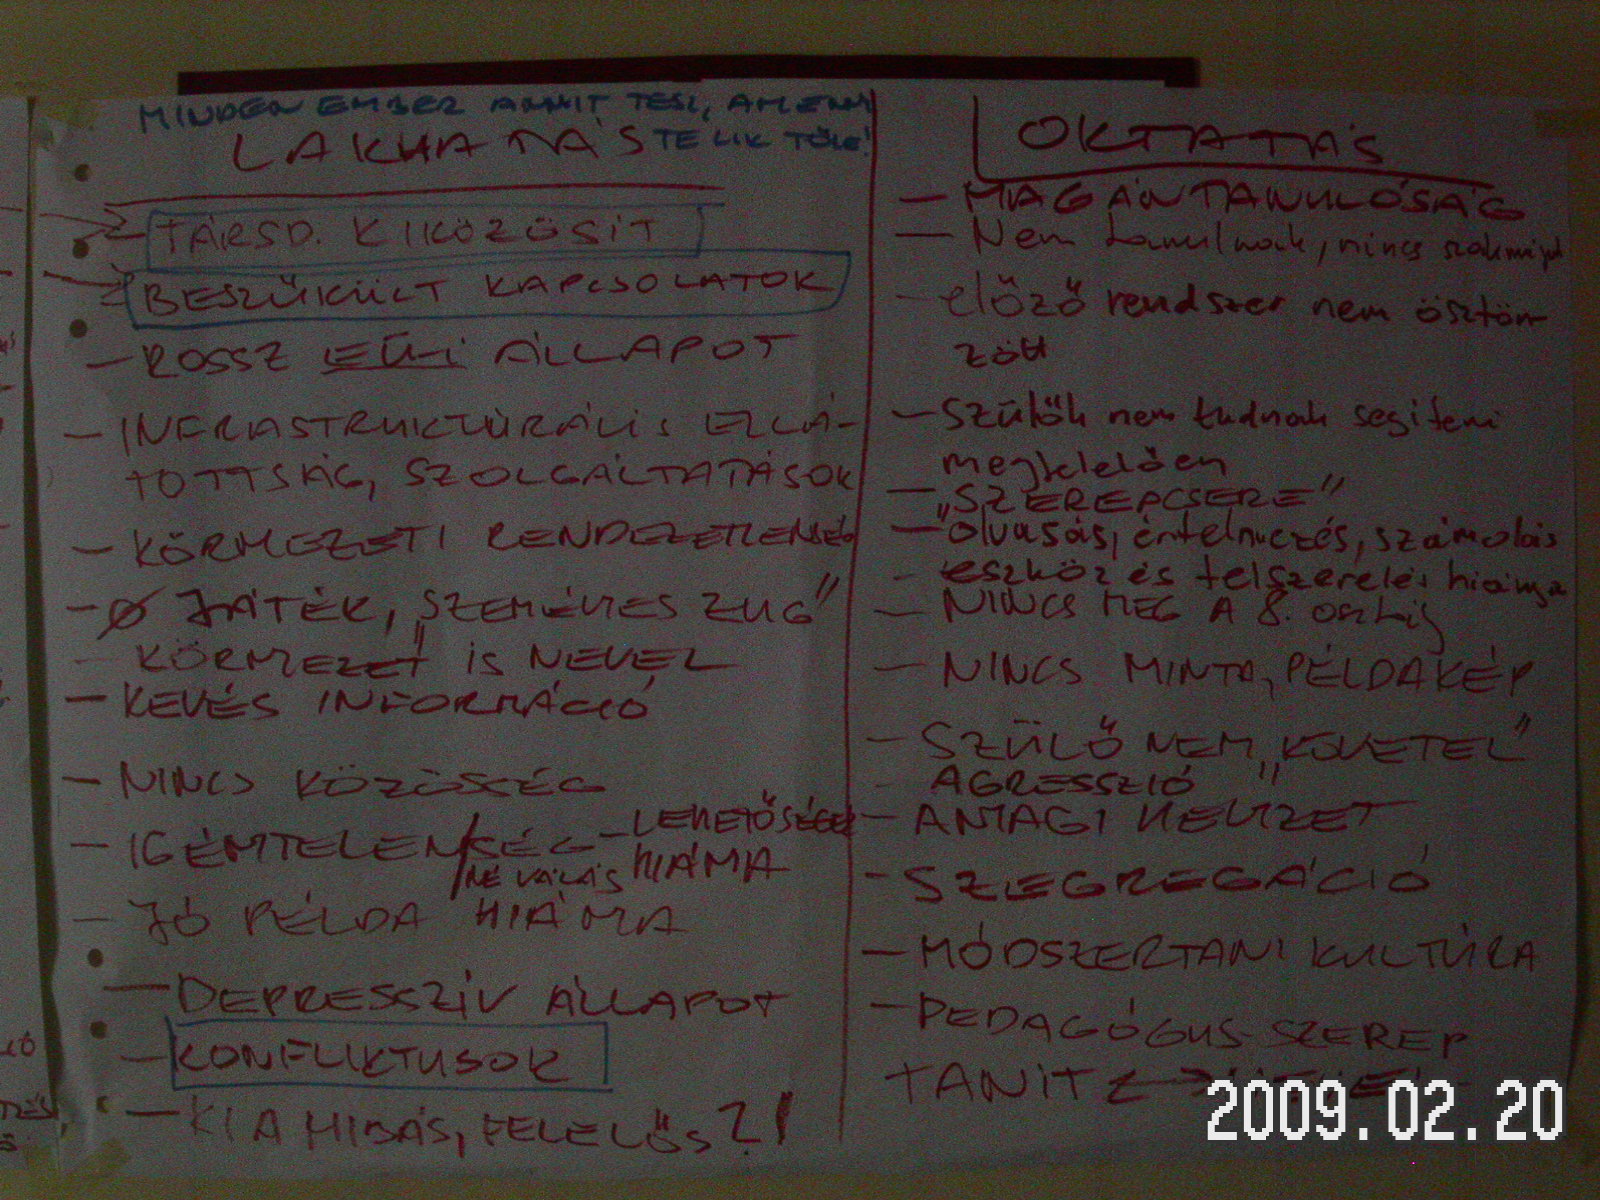 MINDEN EMBER ANNIT TESZ, AMENNYI
TELIK TŐLE!
LAKHATÁS
- TÁRSD. KIKÖZÖSÍT
- BESZŰKÜLT KAPCSOLATOK
- ROSSZ EÜ-I ÁLLAPOT
- INFRASTRUKTÚRÁLIS ELLÁ-
TOTTSÁG, SZOLGÁLTATÁSOK
- KÖRNYEZETI RENDEZETLENSÉG
- Ø JÁTÉK, „SZEMÉLYES ZUG"
- KÖRNYEZET IS NEVEL
- KEVÉS INFORMÁCIÓ
- NINCS KÖZÖSSÉG
- IGÉNYTELENSÉG - LEHETŐSÉGEK
NÉ VÁLÁS HIÁNYA
- JÓ PÉLDA HIÁNYA
- DEPRESSZÍV ÁLLAPOT
- KONFLIKTUSOK
- KI A HIBÁS, FELELŐS?!
OKTATÁS
- MAGÁNTANULÓSÁG
- Nem tanulnak, nincs szakmájuk
- előző rendszer nem ösztön
zött
- Szülők nem tudnak segíteni
megfelelően
- „SZEREPCSERE"
- olvasás, értelmezés, számolás
- eszköz és felszerelés hiánya
- NINCS MEG A 8. osztály
- NINCS MINTA, PÉLDAKÉP
- SZÜLŐ NEM „KÖVETEL"
- AGRESSZIÓ "
- ANYAGI HELYZET
- SZEGREGÁCIÓ
- MÓDSZERTANI KULTÚRA
- PEDAGÓGUS-SZEREP
TANÍT
2009.02.20